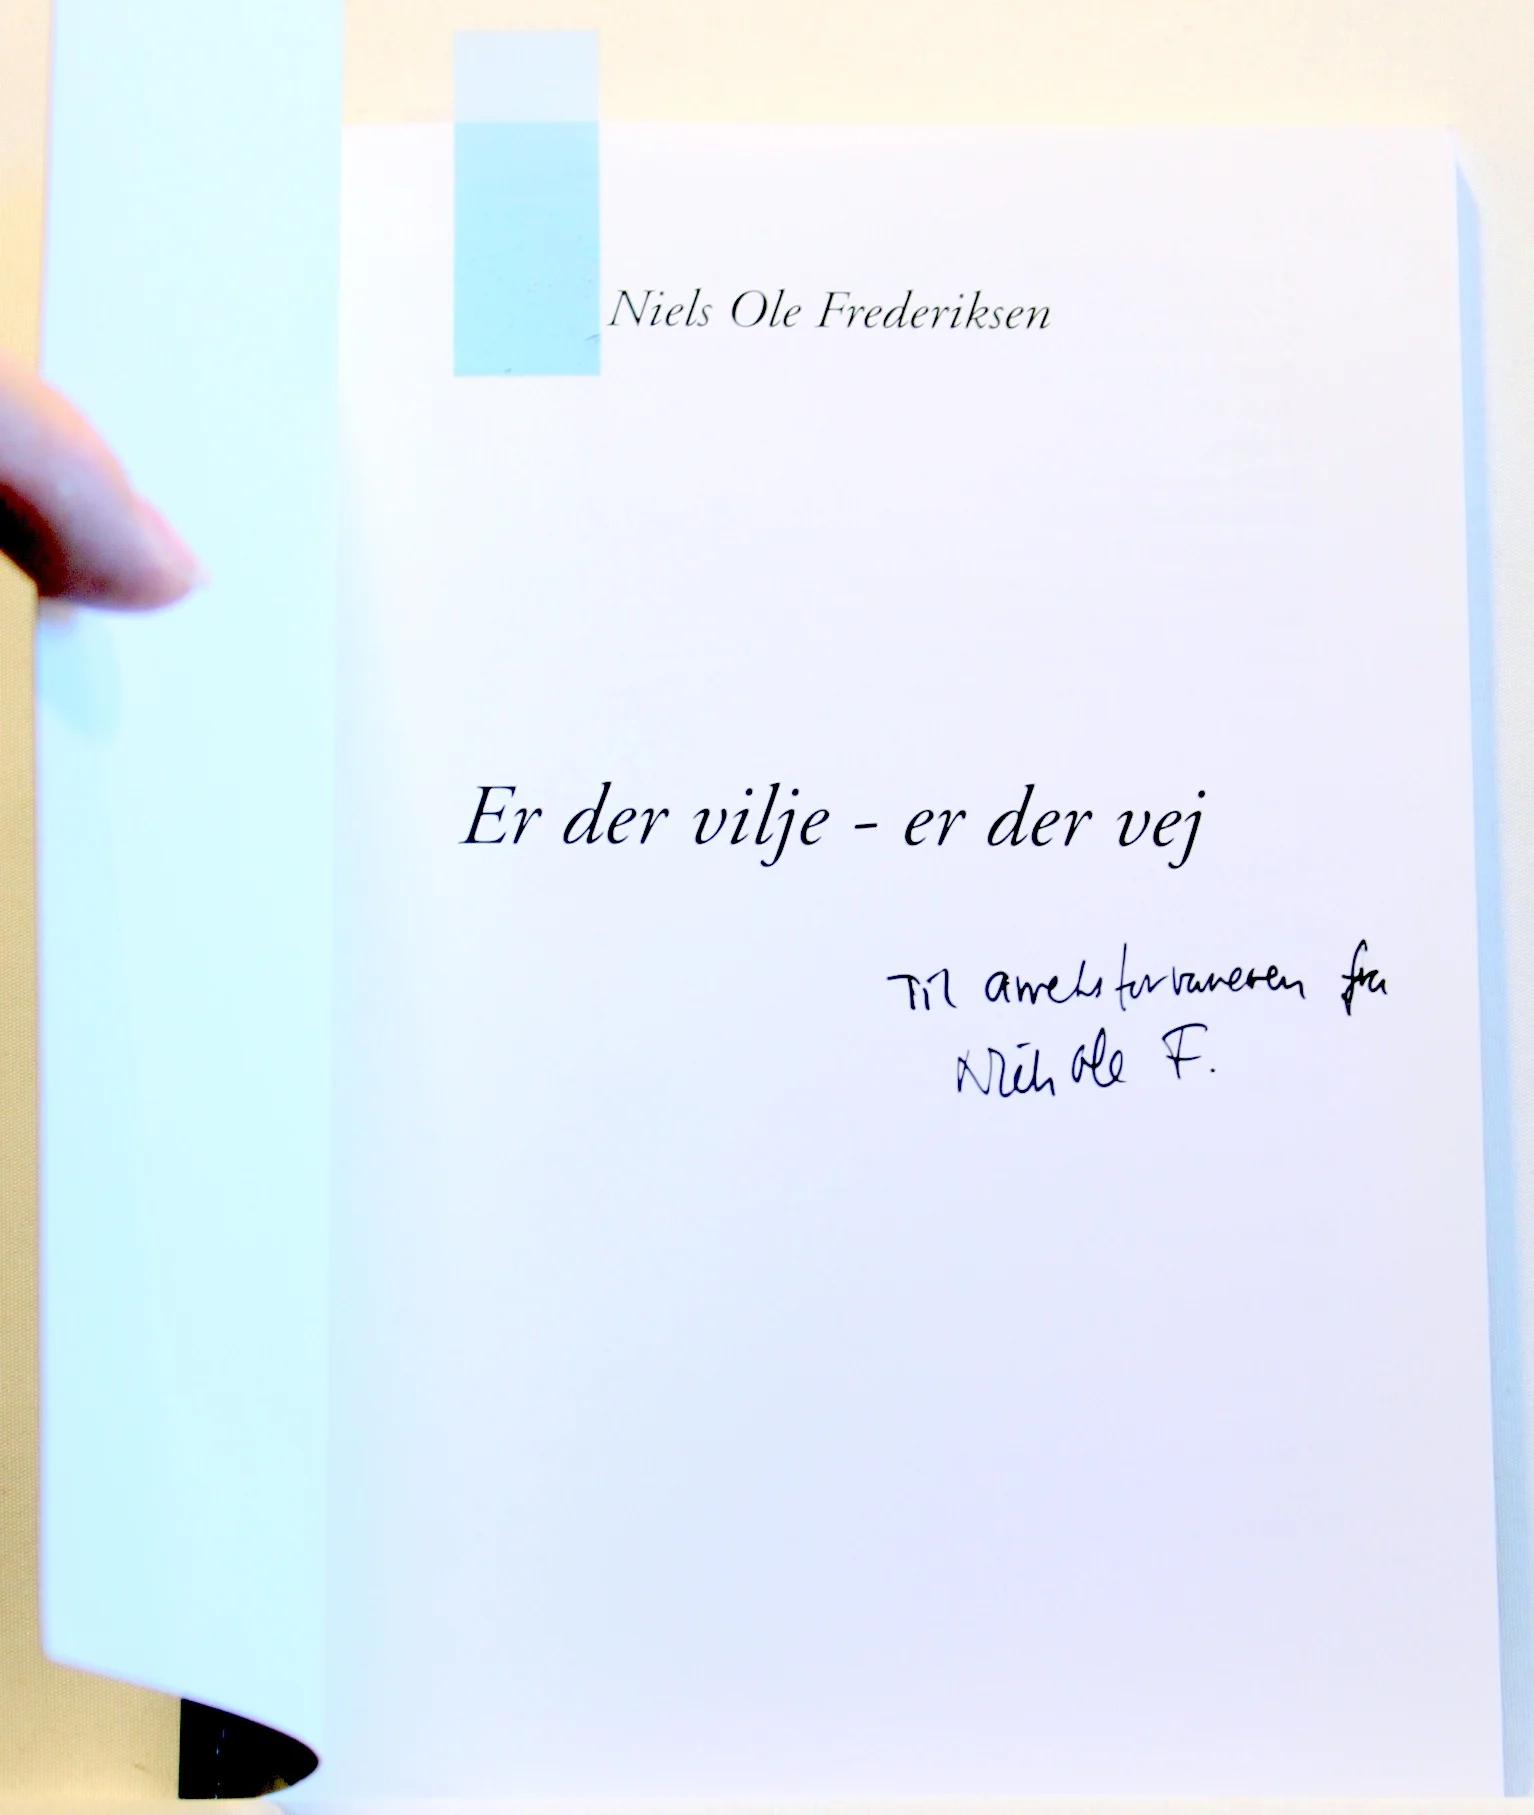 Niels Ole Frederiksen
Er der vilje - er der vej
Til arrestforvareren fra
Niels Ole F.